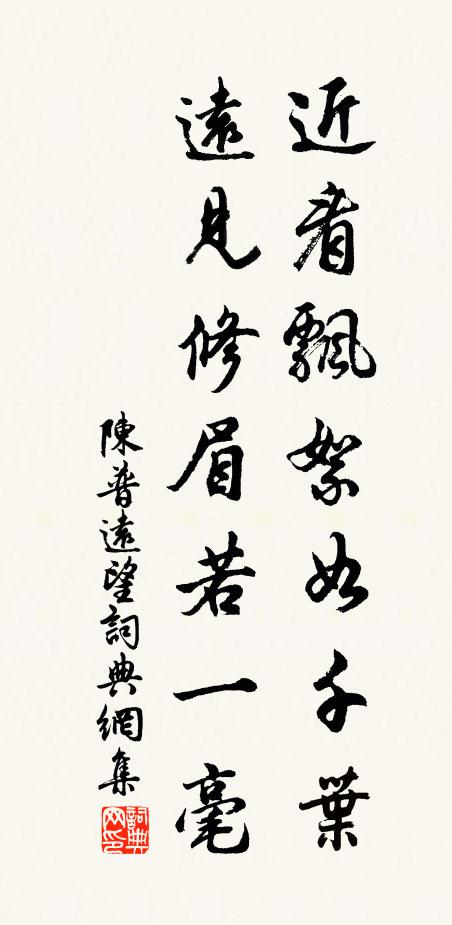 近看飄絮如千葉
遠見修眉若一毫
陳普遠望詞典網集
詞典网印